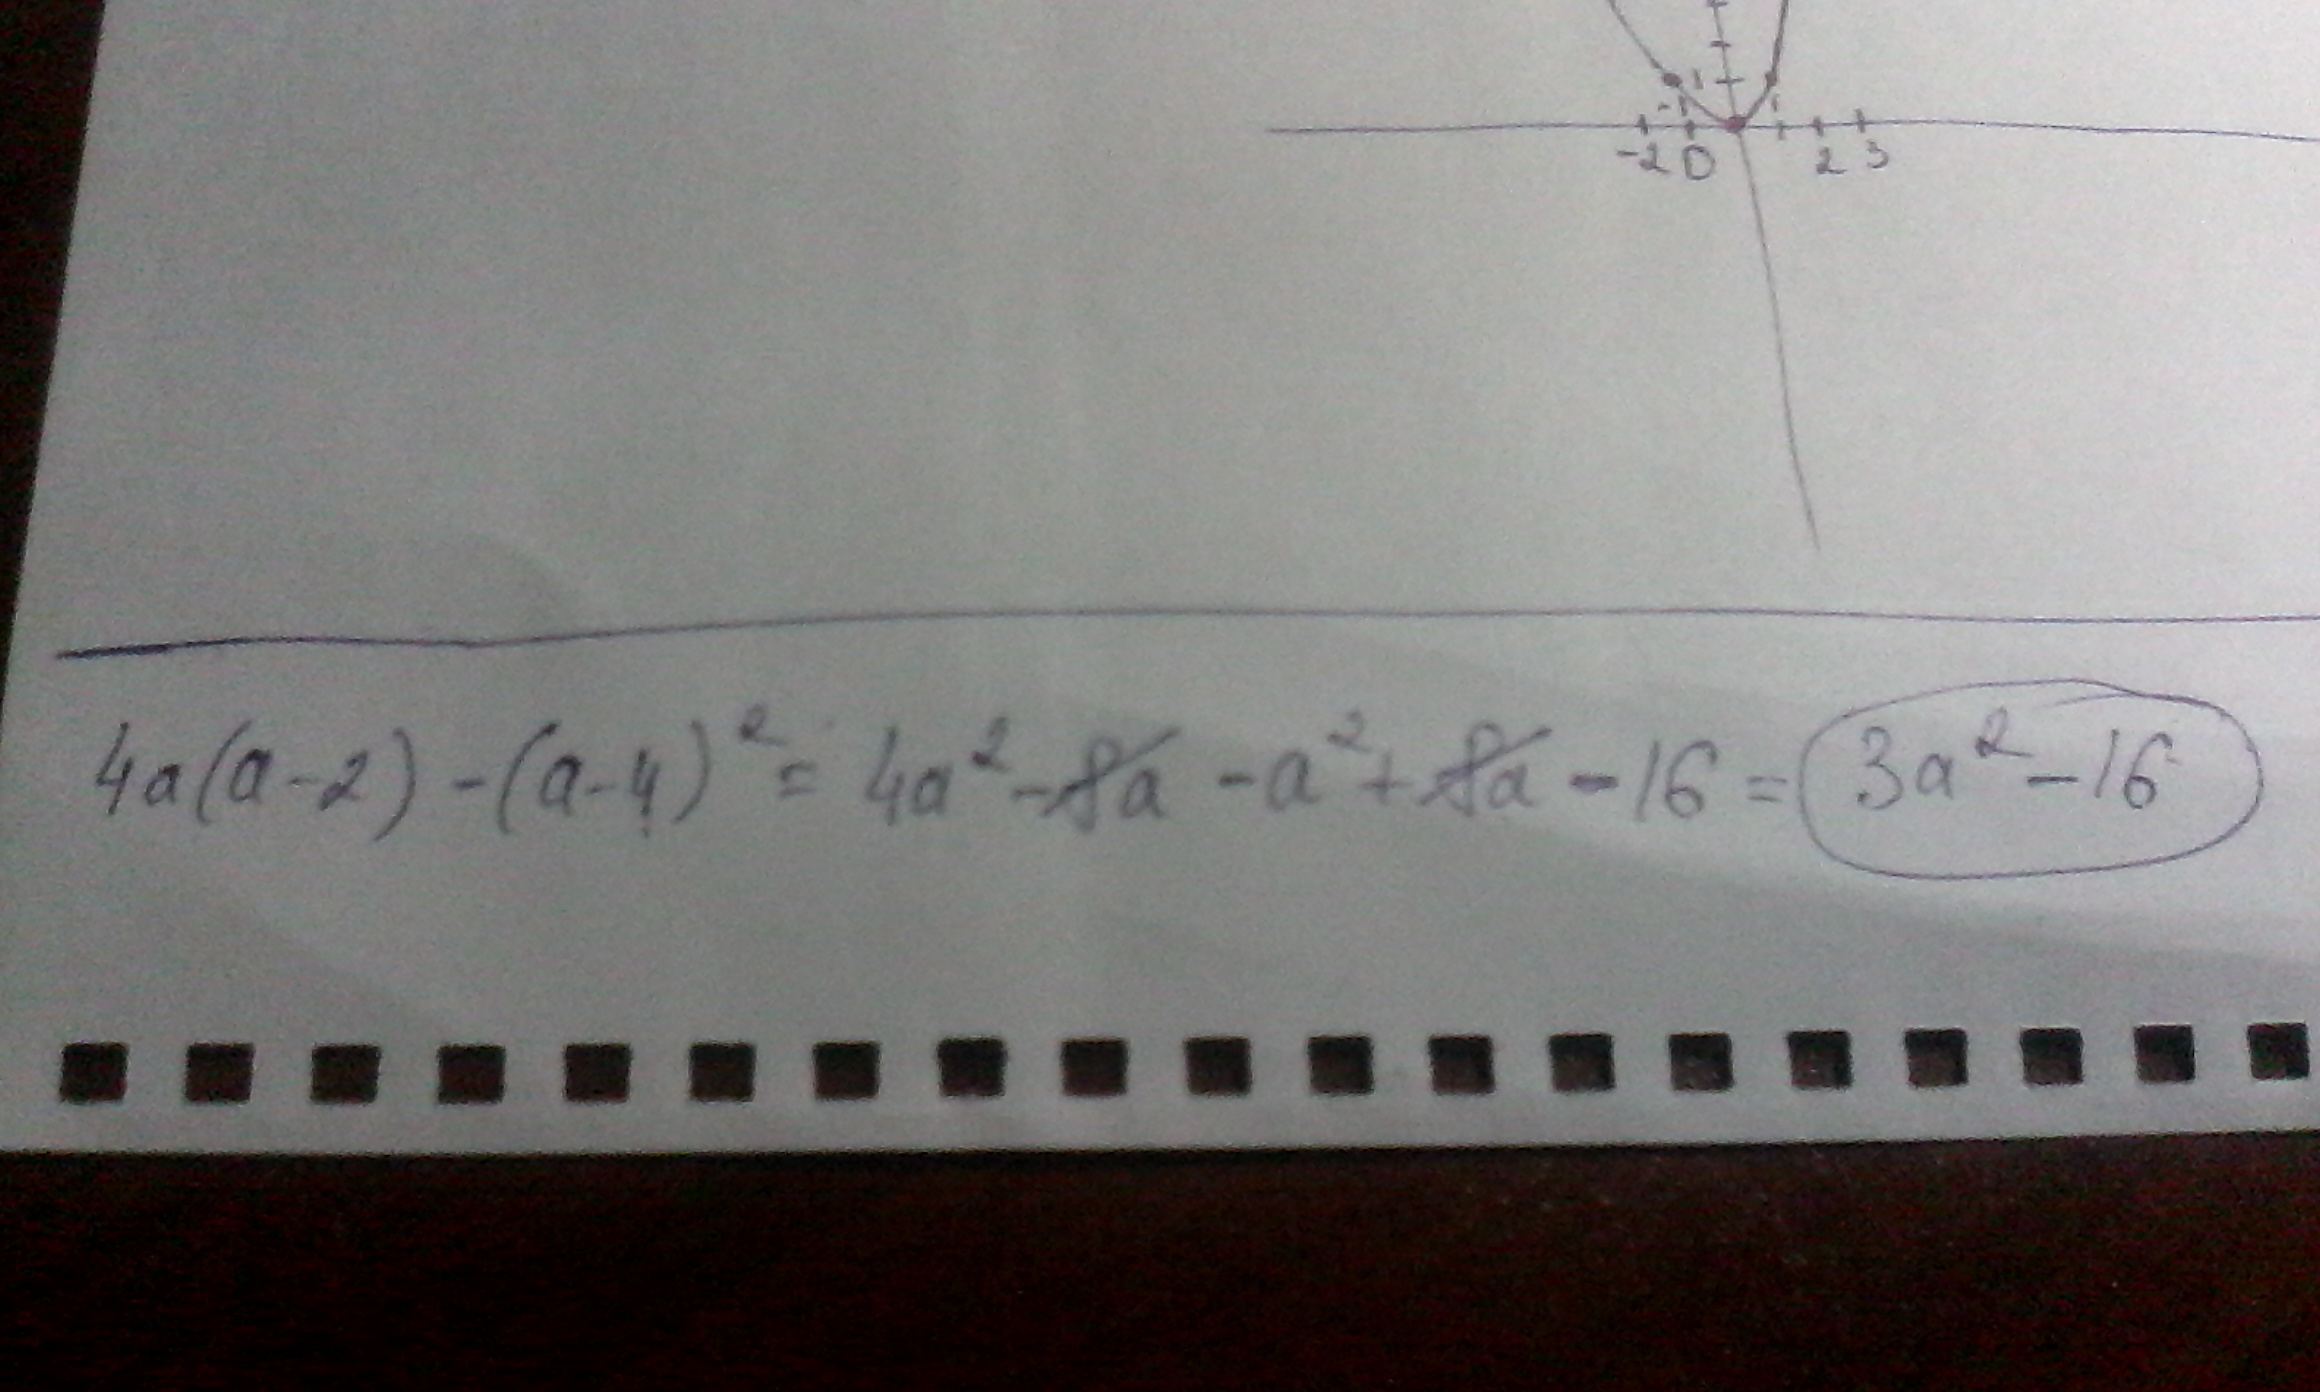 1
-1 1
-2 0 2 3
4a(a-2)-(a-4)²= 4a²-8a-a²+8a-16=3a²-16